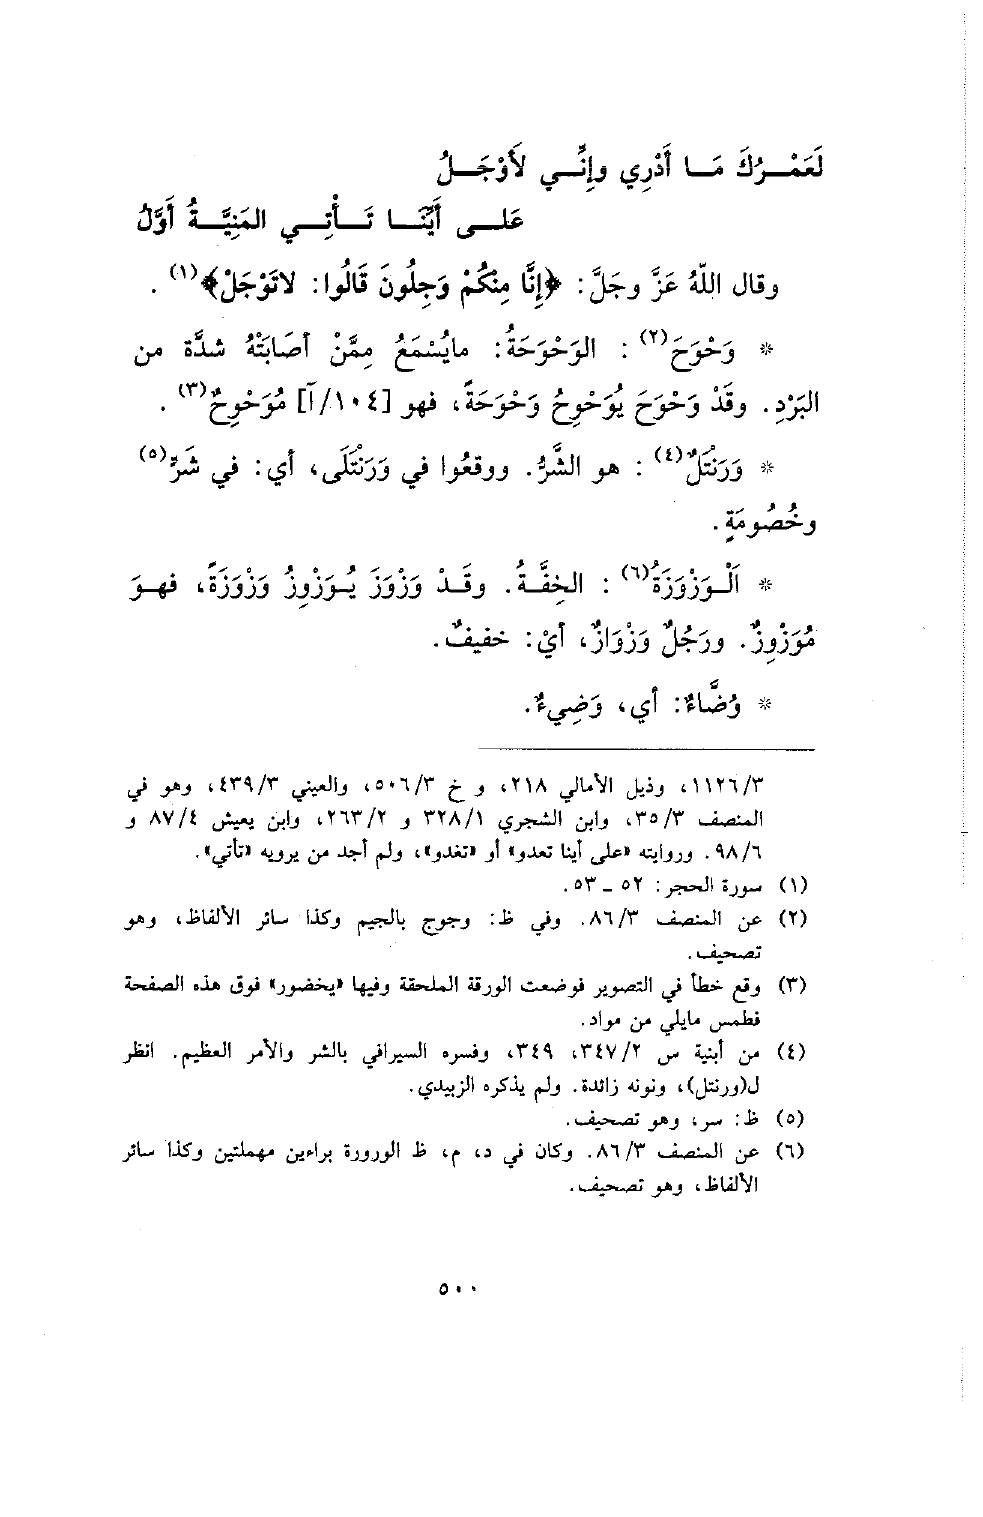 لَعَمْـرُكَ مَـا أَدْرِي وإِنِّـي لَأَوْجَـلُ
عَلـى أَيِّنَـا تَـأْتِـي المَنِيَّـةُ أَوَّلُ
وقال اللهُ عَزَّ وجَلَّ: ﴿إِنَّا مِنكُمْ وَجِلُونَ قَالُوا: لاتَوْجَلْ﴾(١) .
* وَحْوَحَ(٢) : الوَحْوَحَةُ: مايُسْمَعُ مِمَّنْ أصَابَتْهُ شدَّة من
البَرْدِ. وقَدْ وَحْوَحَ يُوَحْوِحُ وَحْوَحَةً، فهو [١٠٤/آ] مُوَحْوِحٌ(٣) .
* وَرَنْتَلٌ(٤) : هو الشَّرُّ. ووقعُوا في وَرَنْتَلَى، أي: في شَرٍّ(٥)
وخُصُومَةٍ.
* اَلْـوَزْوَزَةُ(٦) : الخِفَّـةُ. وقَـدْ وَزْوَزَ يُـوَزْوِزُ وَزْوَزَةً، فهـوَ
مُوَزْوِزٌ. ورَجُلٌ وَزْوَازٌ، أيْ: خفيفٌ.
* وُضَّاءٌ: أي، وَضِيءٌ.
١١٢٦/٣، وذيل الأمالي ٢١٨، و خ ٥٠٦/٣، والعيني ٤٣٩/٣، وهو في
المنصف ٣٥/٣، وابن الشجري ٣٢٨/١ و ٢٦٣/٢، وابن يعيش ٨٧/٤ و
٩٨/٦. وروايته «على أينا تعدو» أو «تغدو»، ولم أجد من يرويه «تأتي».
(١) سورة الحجر: ٥٢ ـ ٥٣.
(٢) عن المنصف ٨٦/٣. وفي ظ: وجوج بالجيم وكذا سائر الألفاظ، وهو
تصحيف.
(٣) وقع خطأ في التصوير فوضعت الورقة الملحقة وفيها «يخضور» فوق هذه الصفحة
فطمس مايلي من مواد.
(٤) من أبنية س ٣٤٧/٢، ٣٤٩، وفسره السيرافي بالشر والأمر العظيم. انظر
ل(ورنتل)، ونونه زائدة. ولم يذكره الزبيدي.
(٥) ظ: سر، وهو تصحيف.
(٦) عن المنصف ٨٦/٣. وكان في د، م، ظ الورورة براءين مهملتين وكذا سائر
الألفاظ، وهو تصحيف.
٥٠٠